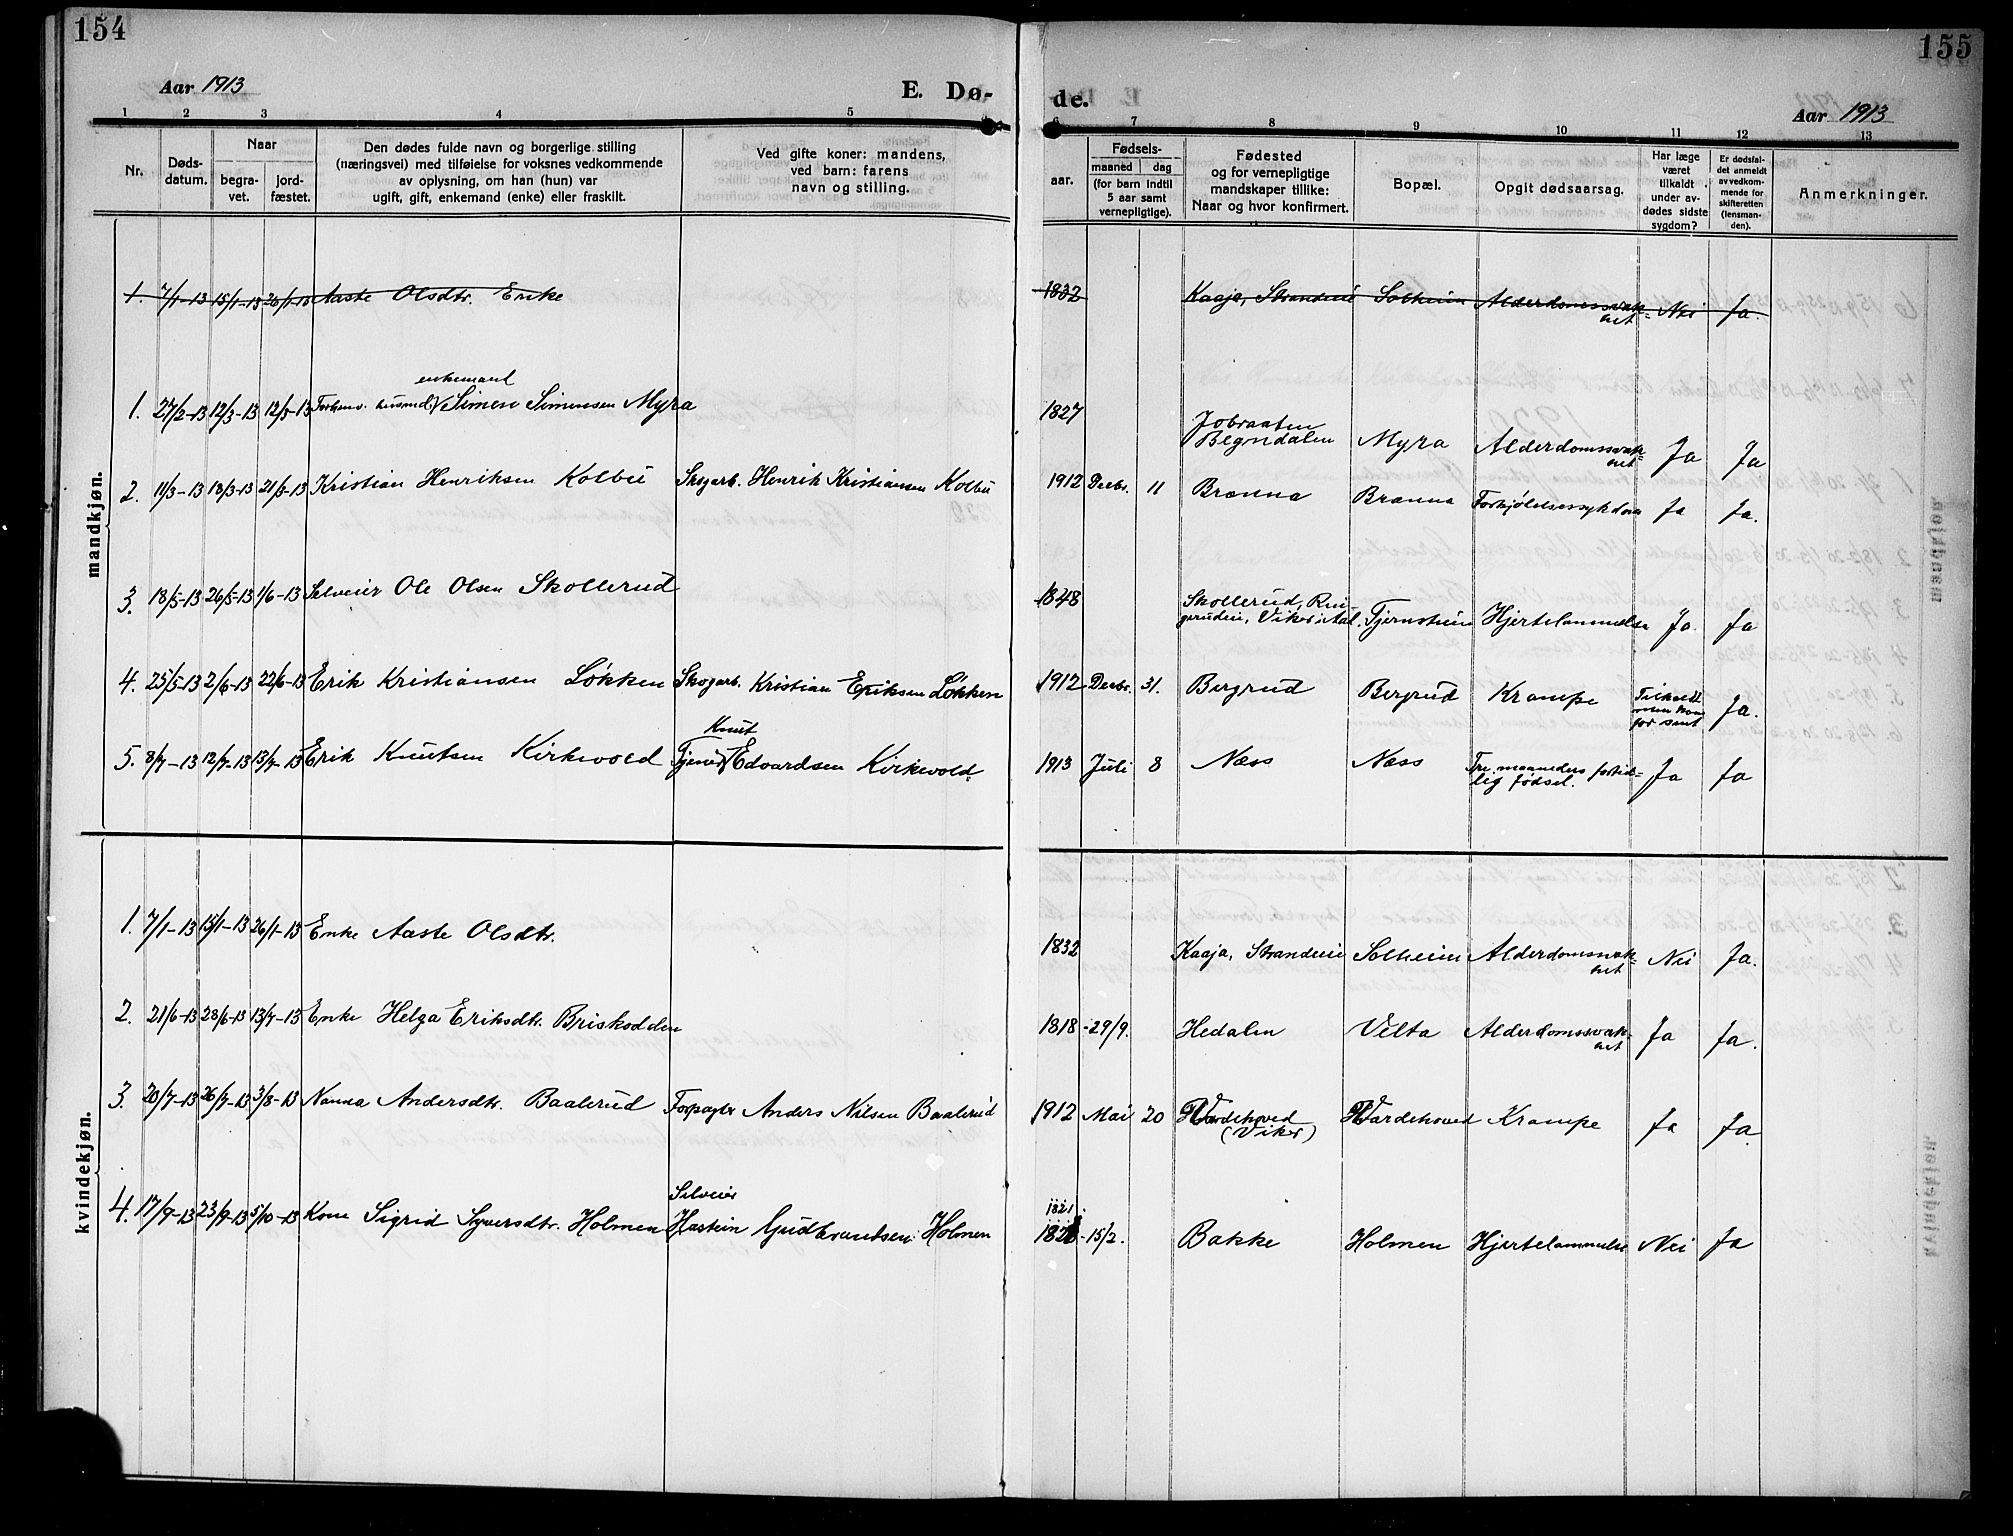 154
155
Aar 1913
E. Dø-
de.
Aar 1913
1 2 3 4 5
6 7 8 9 10 11 12 13
Nr.
Døds-
datum.
Naar
begra-
vet.
jord-
fæstet.
Den dødes fulde navn og borgerlige stilling
(næringsvei) med tilføielse for voksnes vedkommende
av oplysning, om han (hun) var
ugift, gift, enkemand (enke) eller fraskilt.
Ved gifte koner: mandens,
ved barn: farens
navn og stilling.
Fødsels-
aar.
maaned dag
(for barn indtil
5 aar samt
vernepligtige).
Fødested
og for vernepligtige
mandskaper tillike:
Naar og hvor konfirmert.
Bopæl.
Opgit dødsaarsag.
Har læge
været
tilkaldt
under av-
dødes sidste
sygdom?
Er dødsfal-
det anmeldt
av vedkom-
mende for
skifteretten
(lensman-
den).
Anmerkninger.
mandkjøn.
1. 7/1-13 15/1-13 26/1-13 Aaste Olsdtr. Enke 1832 Kaaja, Strandeie Solheim Alderdomssvak=
het Nei Ja.
enkemand
1. 27/2-13 12/3-13 12/3-13 Forhenv. husmd. Simen Simensen Myra 1827 Jobraaten
Begndalen Myra Alderdomssvak=
het Ja Ja
2. 11/3-13 18/3-13 21/3-13 Kristian Henriksen Kolbu Skogarb. Henrik Kristiansen Kolbu 1912 Decbr. 11 Brænna Brænna Forkjølelsessykdom Ja Ja.
3. 18/5-13 26/5-13 1/6-13 Selveier Ole Olsen Skollerud 1848 Skollerud, Rin-
gerudeie, Viker i Aal. Tjernsheim Hjertelammelse Ja. Ja
4. 25/5-13 2/6-13 22/6-13 Erik Kristiansen Løkken Skogarb. Kristian Eriksen Løkken 1912 Decbr. 31. Bergrud Bergrud Krampe Tilkaldt
men kom
for sent Ja.
Knut
5. 8/7-13 12/7-13 13/7-13 Erik Knutsen Kirkevold Tjener Edvardsen Kirkevold. 1913 Juli 8 Næss Næss Tre maaneders fortid=
lig fødsel. Ja Ja
kvindekjøn.
1. 7/1-13 15/1-13 26/1-13 Enke Aaste Olsdtr. 1832 Kaaja, Strandeie Solheim Alderdomssvak=
het Nei Ja.
2. 21/6-13 28/6-13 13/7-13 Enke Helga Eriksdtr. Briskodden 1818-29/9. Hedalen Velta Alderdomssvak=
het Ja Ja.
3. 20/7-13 26/7-13 3/8-13 Nanna Andersdtr. Baalerud Forpagter Anders Nilsen Baalerud 1912 Mai 20 Vardehoved
(Viker) Vardehoved Krampe Ja Ja
Selveier
1821
4. 17/9-13 23/9-13 5/10-13 Kone Sigrid Syversdtr. Holmen Hastein Gudbrandsen Holmen 1821-15/2. Bakke Holmen Hjertelammelse Nei Ja